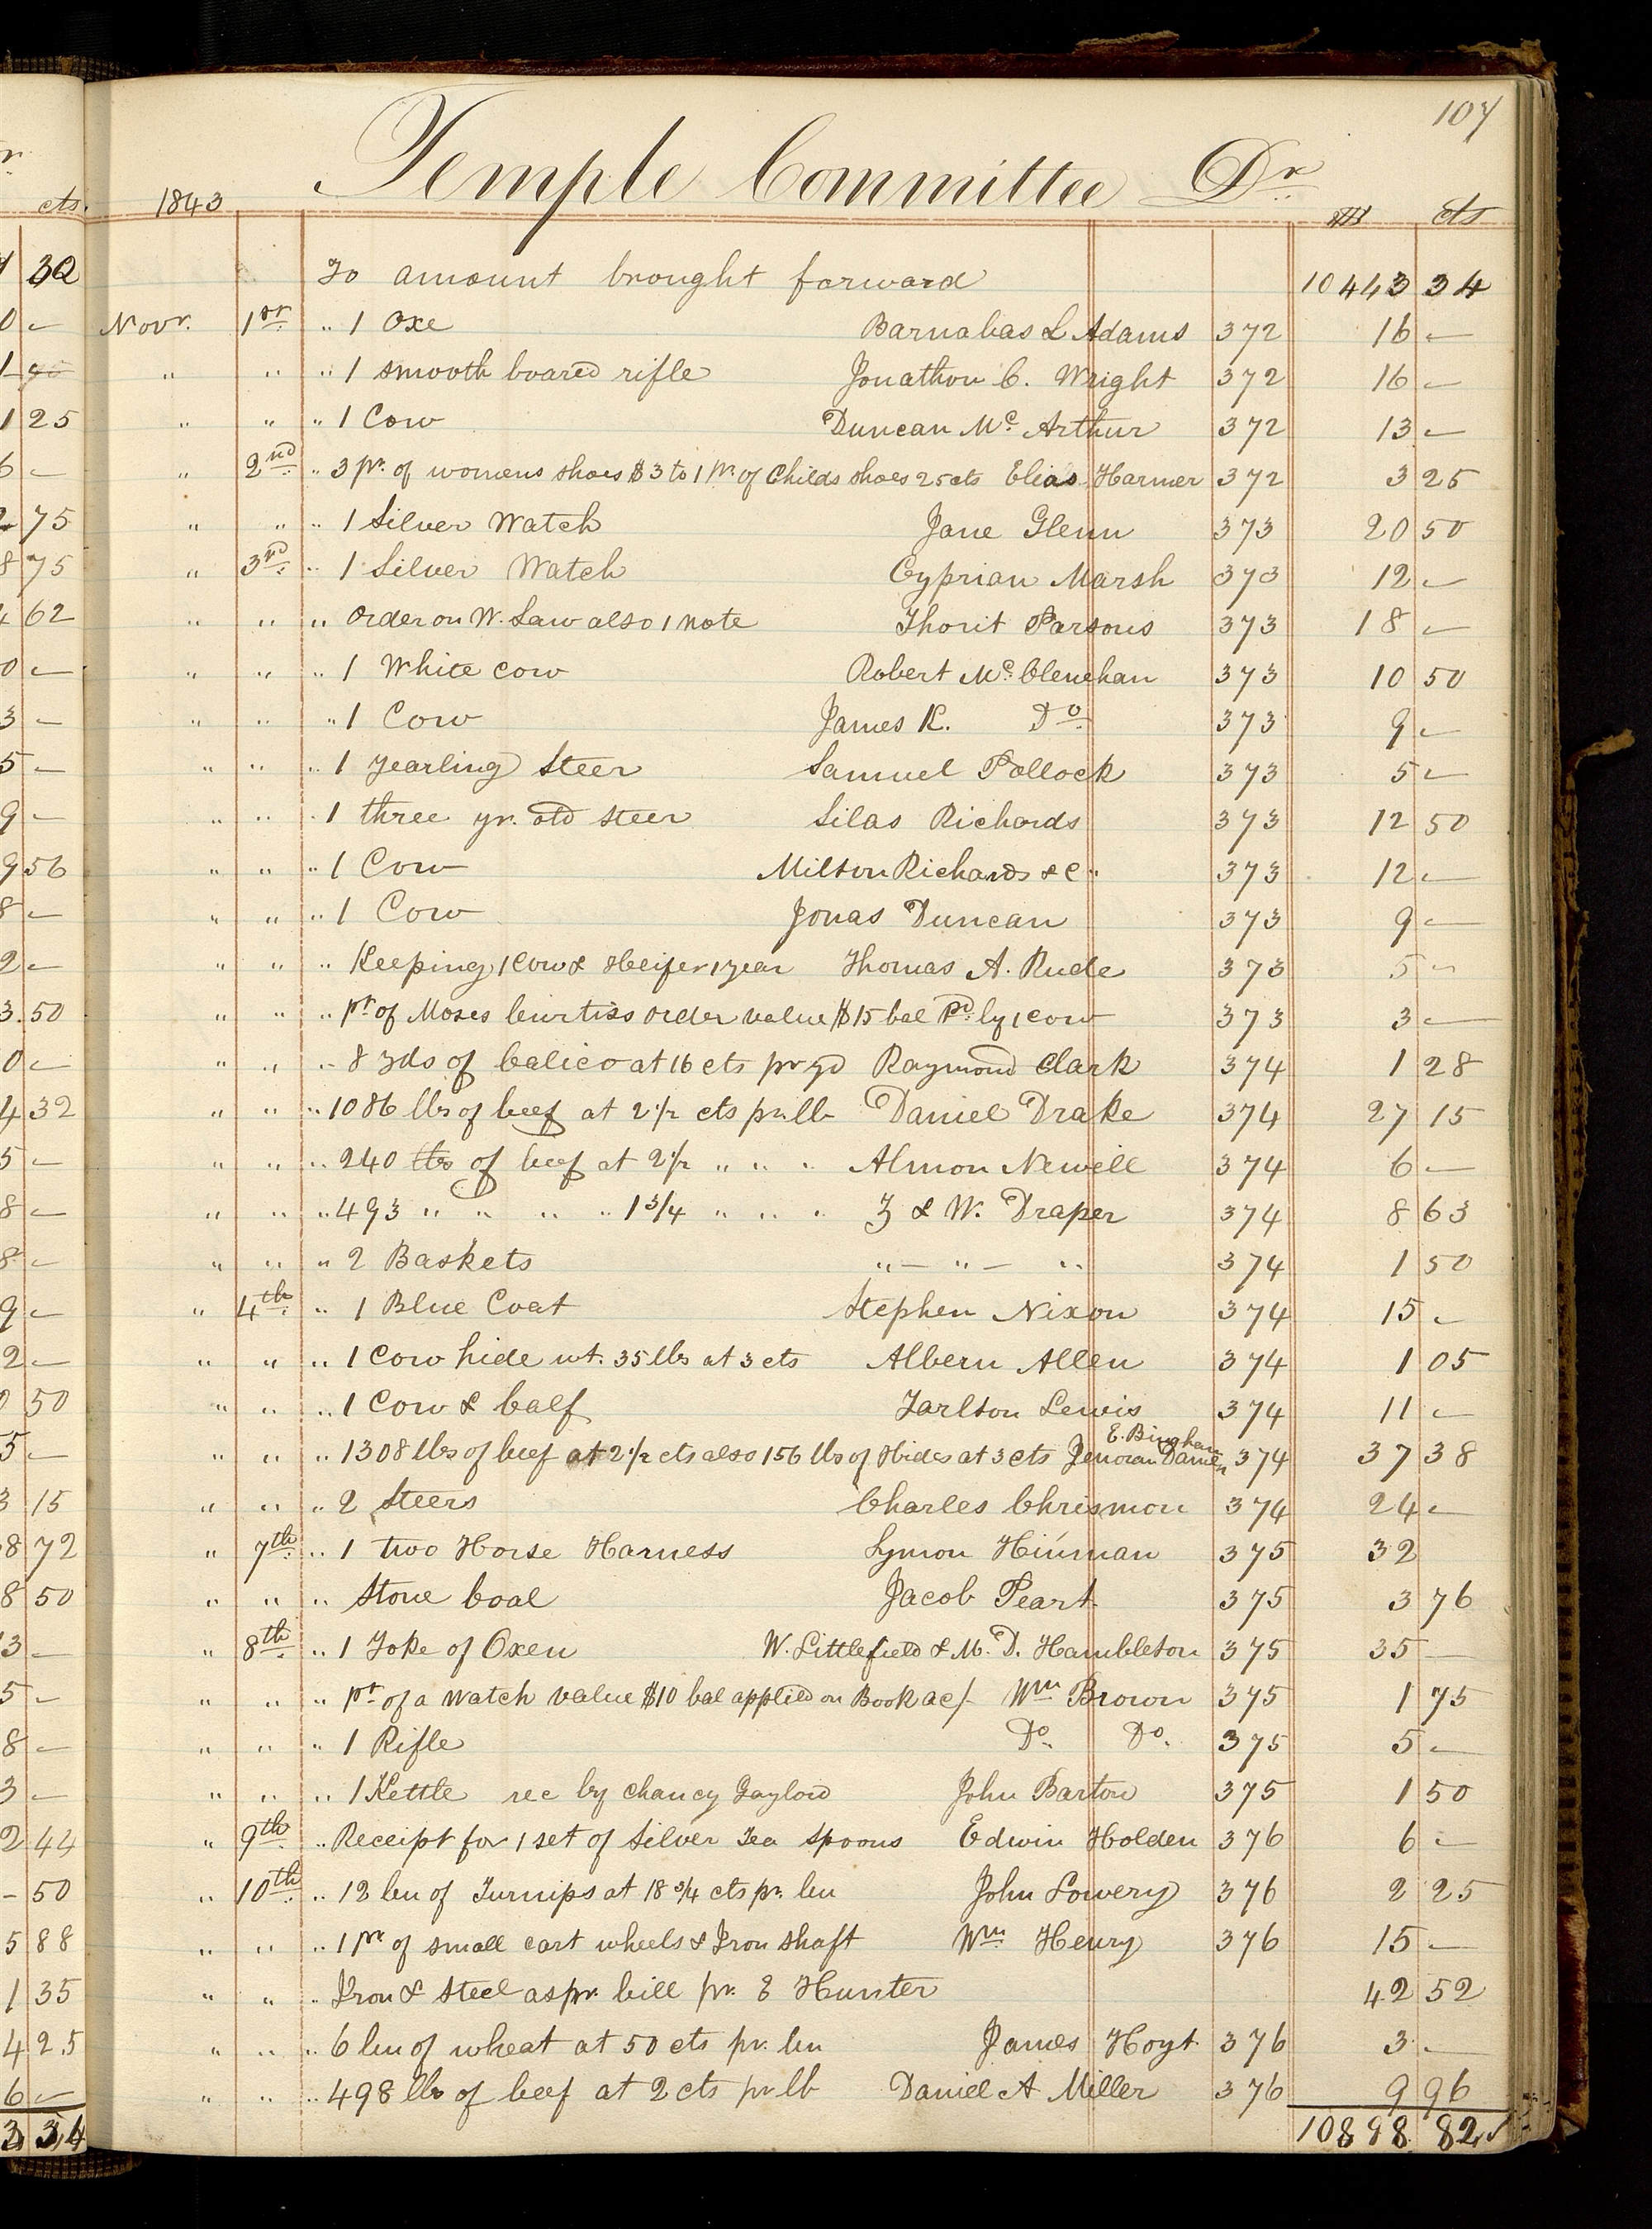 107
Temple Committee Dr
1843 $ cts
To amount brought forward 10443 34
Novr. 1st " 1 Oxe Barnabas L Adams 372 16 —
" " " 1 smooth boared rifle Jonathon C. Wright 372 16 —
" " " 1 Cow Duncan Mc Arthur 372 13 —
" 2nd " 3 pr. of womens shoes $3 to 1 pr of Childs shoes 25 cts Elias Harmer 372 3 25
" " " 1 Silver Watch Jane Glenn 373 20 50
" 3rd " 1 Silver Watch Cyprian Marsh 373 12 —
" " " Order on W. Law also 1 note Thorit Parsons 373 18 —
" " " 1 White cow Robert Mc Clenehan 373 10 50
" " " 1 Cow James K. Do 373 9 —
" " " 1 yearling Steer Samuel Pollock 373 5 —
" " " 1 three yr. old steer Silas Richards 373 12 50
" " " 1 Cow Milton Richards & C" 373 12 —
" " " 1 Cow Jonas Duncan 373 9 —
" " " Keeping 1 Cow & Heifer 1 year Thomas A. Rude 373 5 —
" " " pt of Moses Curtiss order value $15 bal Pd. by 1 cow 373 3 —
" " " 8 yds of Calico at 16 cts pr yd Raymond Clark 374 1 28
" " " 1086 lbs of beef at 2 1/2 cts pr. lb Daniel Drake 374 27 15
" " " 240 lbs of beef at 2 1/2 " " " Almon Newell 374 6 —
" " " 493 " " " " 1 3/4 " " " Z & W. Draper 374 8 63
" " " 2 Baskets " — " — " 374 1 50
" 4th " 1 Blue Coat Stephen Nixon 374 15 —
" " " 1 Cow hide wt. 35 lbs at 3 cts Albern Allen 374 1 05
" " " 1 Cow & Calf Tarlton Lewis 374 11 —
E. Bingham
" " " 1308 lbs of beef at 2 1/2 cts also 156 lbs of Hides at 3 cts 374 37 38
" " " 2 Steers Charles Chrismon 374 24 —
" 7th " 1 two Horse Harness Lymon Hinman 375 32
" " " Stone Coal Jacob Peart 375 3 76
" 8th " 1 Yoke of Oxen W. Littlefield & M. D. Hambleton 375 35 —
" " " pt of a Watch value $10 bal applied on Book ac/- Wm Brown 375 1 75
" " " 1 Rifle Do. Do. 375 5 —
" " " 1 Kettle rec by Chancy Gaylord John Barton 375 1 50
" 9th " Receipt for 1 set of Silver Tea spoons Edwin Holden 376 6 —
" 10th " 12 bu of Turnips at 18 3/4 cts pr. bu John Lowery 376 2 25
" " " 1 pr of small cart wheels & Iron shaft Wm Henry 376 15 —
" " " Iron & Steel as pr. bill pr. E Hunter 42 52
" " " 6 bu of wheat at 50 cts pr. bu James Hoyt 376 3 —
" " " 498 lbs of beef at 2 cts pr lb Daniel A Miller 376 9 96
10898 82